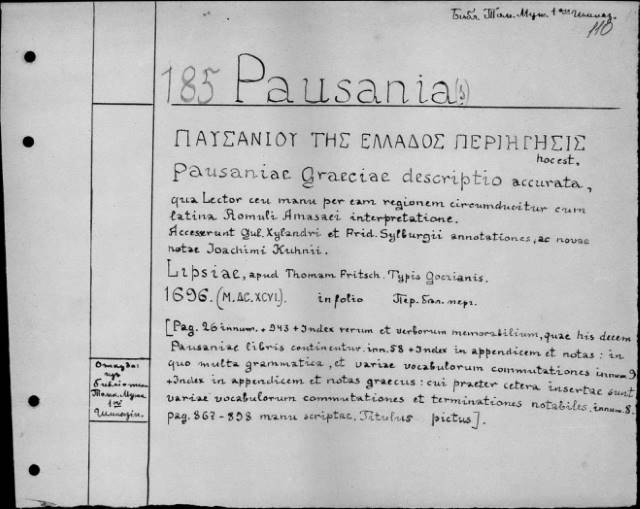 Библ. Там. Муж. 1ой Гимназ.
110
185 Pausania(s)
ΠΑΥΣΑΝΙΟΥ ΤΗΣ ΕΛΛΑΔΟΣ ΠΕΡΙΗΓΗΣΙΣ
hoc est,
Pausaniae Graeciae descriptio accurata,
qua Lector ceu manu per eam regionem circumducitur cum
latina Romuli Amasaei interpretatione.
Accesserunt Gul. Xylandri et Frid. Sylburgii annotationes, ac novae
notae Ioachimi Kuhnii.
Lipsiae, apud Thomam Fritsch. Typis Goezianis.
1696. (M.DC.XCVI). in folio Пер. бел. перг.
[Pag. 26 innum. + 943 + Index rerum et verborum memorabilium, quae his decem
Pausaniae libris continentur. inn. 58 + Index in appendicem et notas: in
quo multa grammatica, et variae vocabulorum commutationes innum. 9
+ Index in appendicem et notas graecus: cui praeter cetera insertae sunt
variae vocabulorum commutationes et terminationes notabiles. innum. 8.
pag. 867-898 manu scriptae. Titulus pictus].
Откуда:
из
библіотеки
Там. Муж.
1ой
Гимназіи.